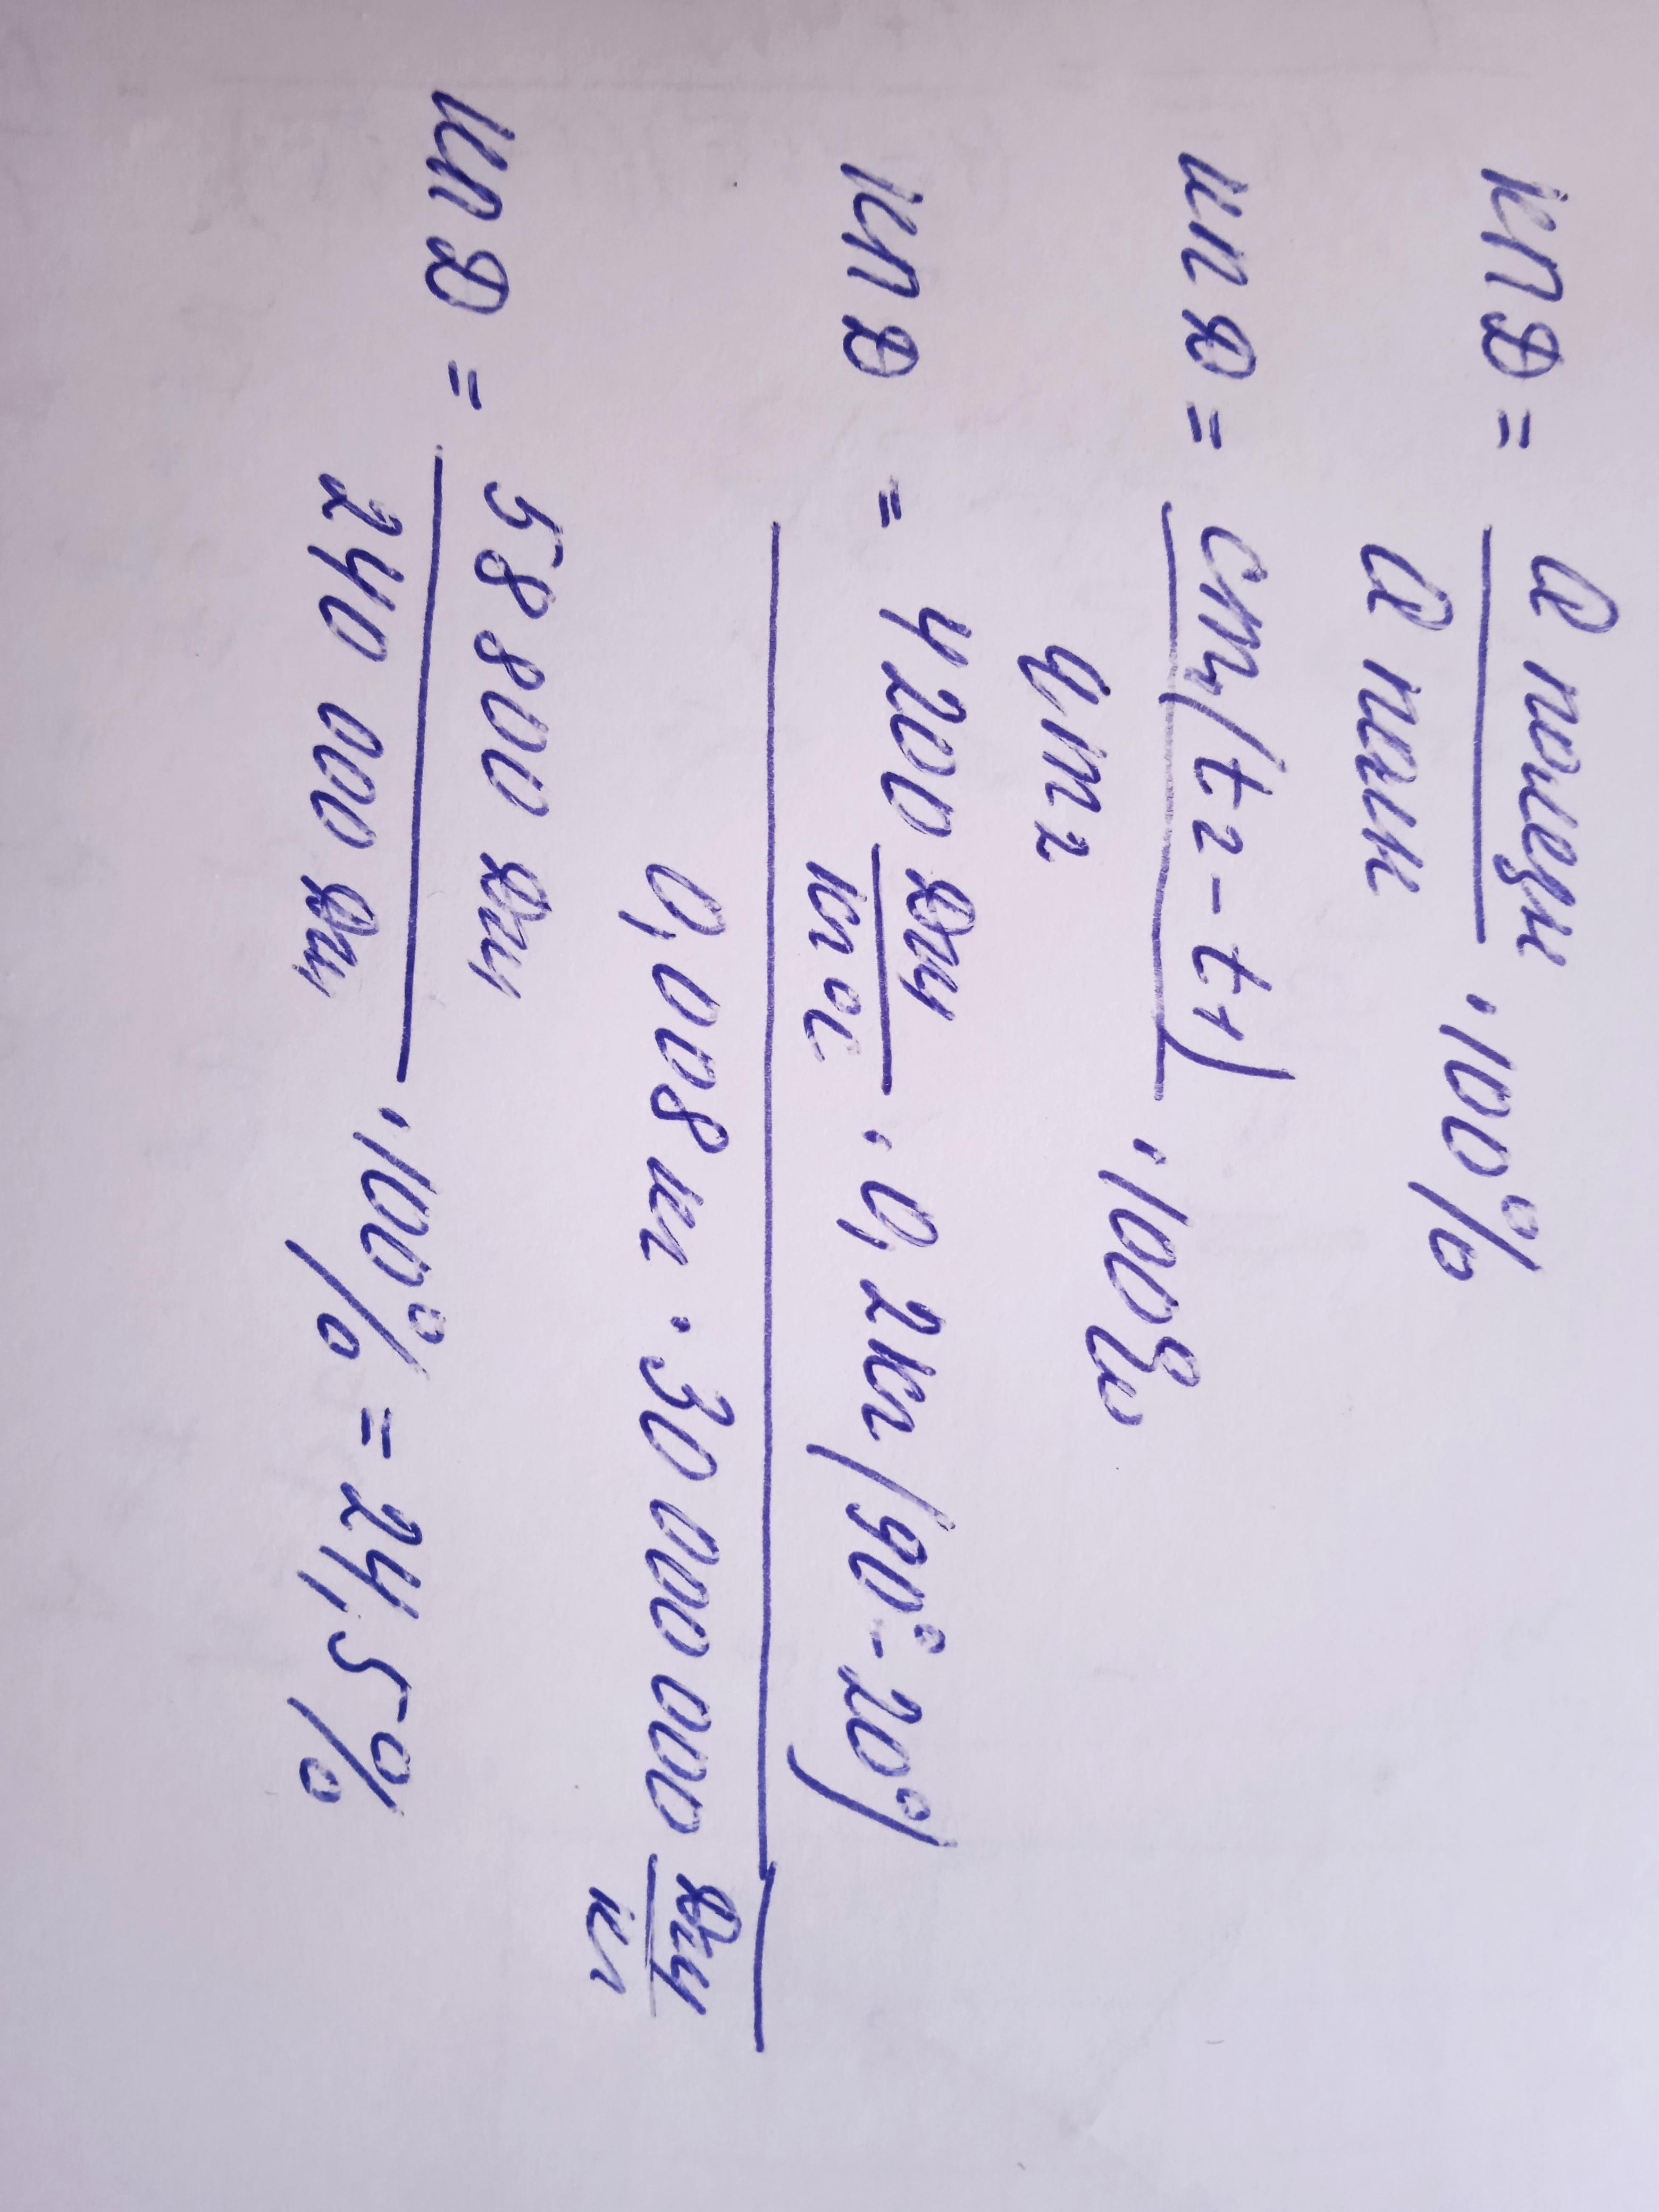 КПД = Q полезн / Q полн · 100%
КПД = cm₁(t₂ - t₁) / qm₂ · 100%
КПД = 4200 Дж/кг°C · 0,2кг(90° - 20°) / 0,008кг · 30 000 000 Дж/кг
КПД = 58800 Дж / 240 000 Дж · 100% = 24,5%